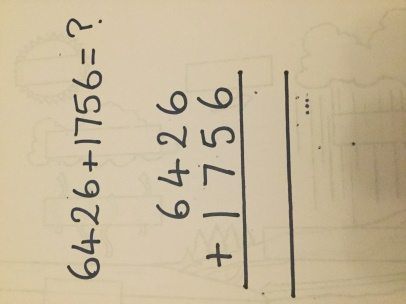 6426+1756=?
6426
+1756
...